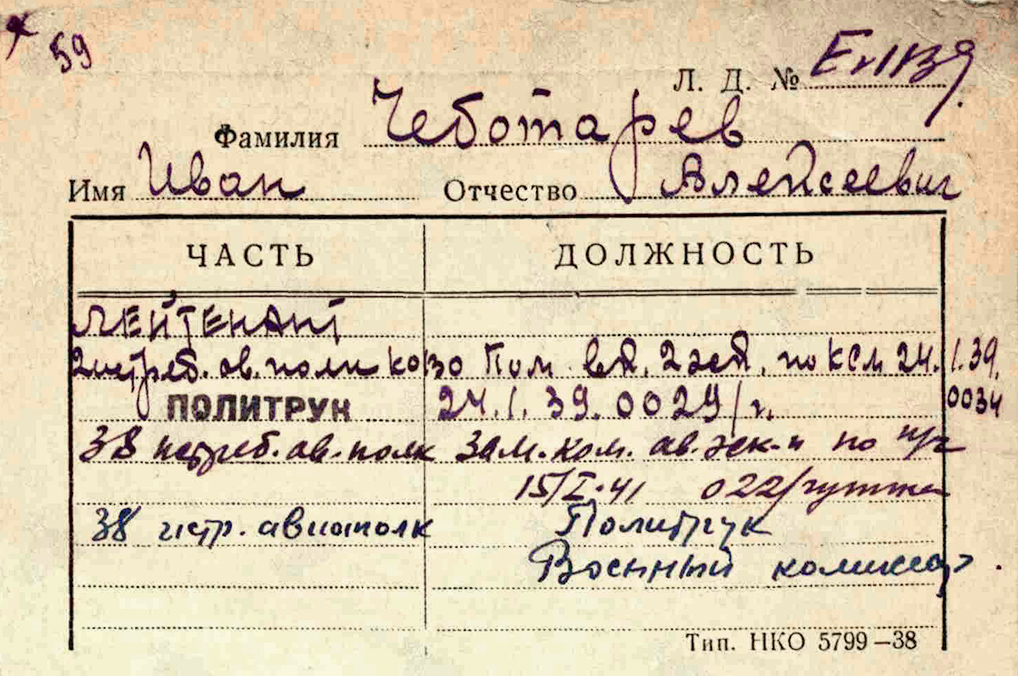 59
Л. Д. №
Фамилия Чеботарев
Имя Иван Отчество Алексеевич
ЧАСТЬ ДОЛЖНОСТЬ
ЛЕЙТЕНАНТ
2 истреб. ав. полк ко Пом в.к. 2 эск. по КСМ 24.1.39.
ПОЛИТРУК 24.1.39.0029/г. 0034
38 истреб. ав. полк Зам. ком. ав. эск-и по п/ч
15/I-41 022/
38 истр. авиаполк Политрук
Военный комиссар
Тип. НКО 5799—38